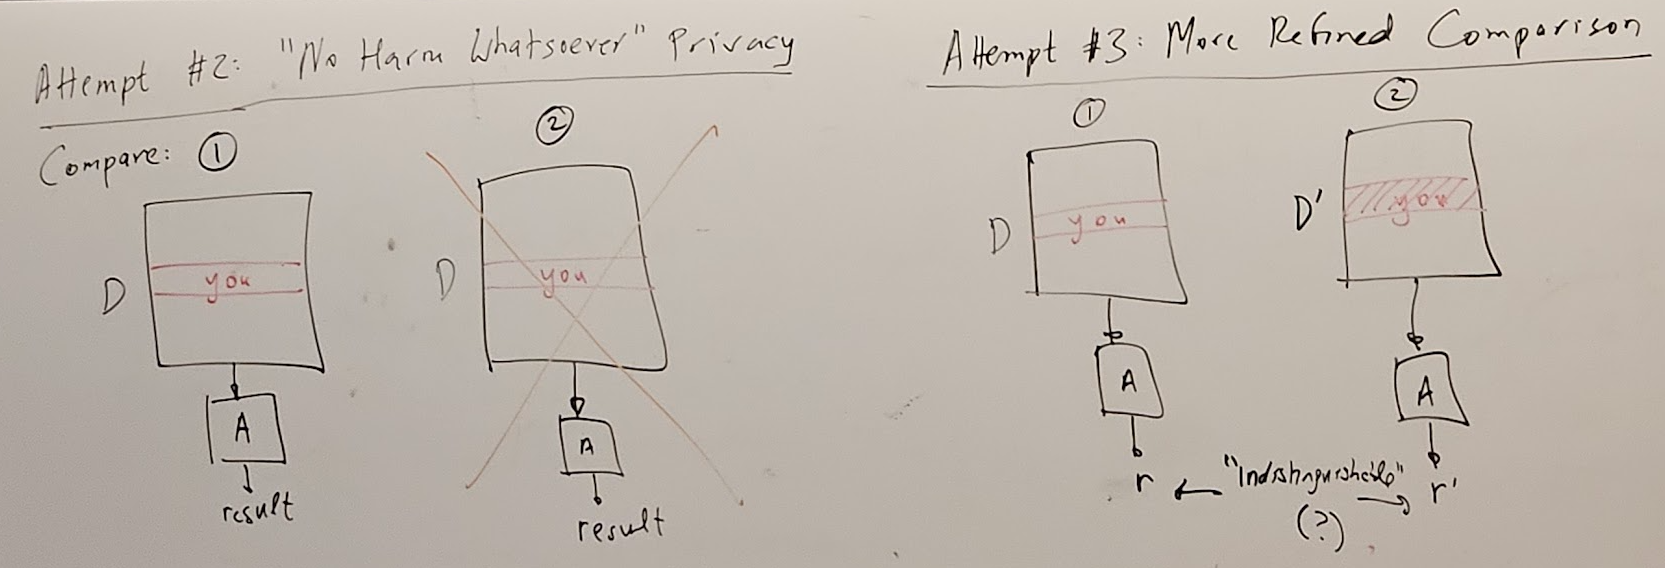 Attempt #2: "No Harm Whatsoever" Privacy
Compare: ①
②
D
you
A
result
D
you
A
result
Attempt #3: More Refined Comparison
①
②
D
you
A
r
D'
you
A
r'
"Indistinguishable"
(?)